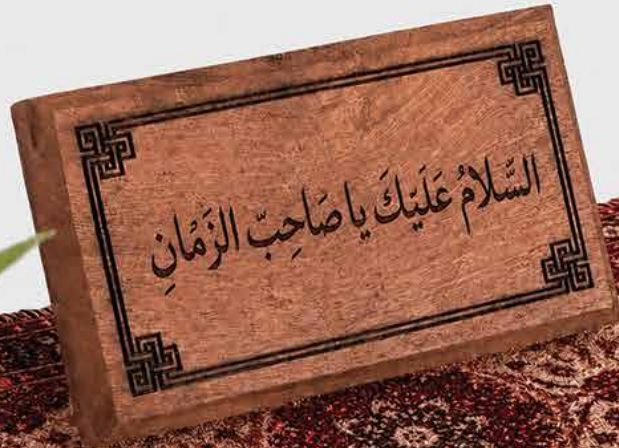 السَّلامُ عَلَيكَ يا صَاحِبّ الزَمٰانِ